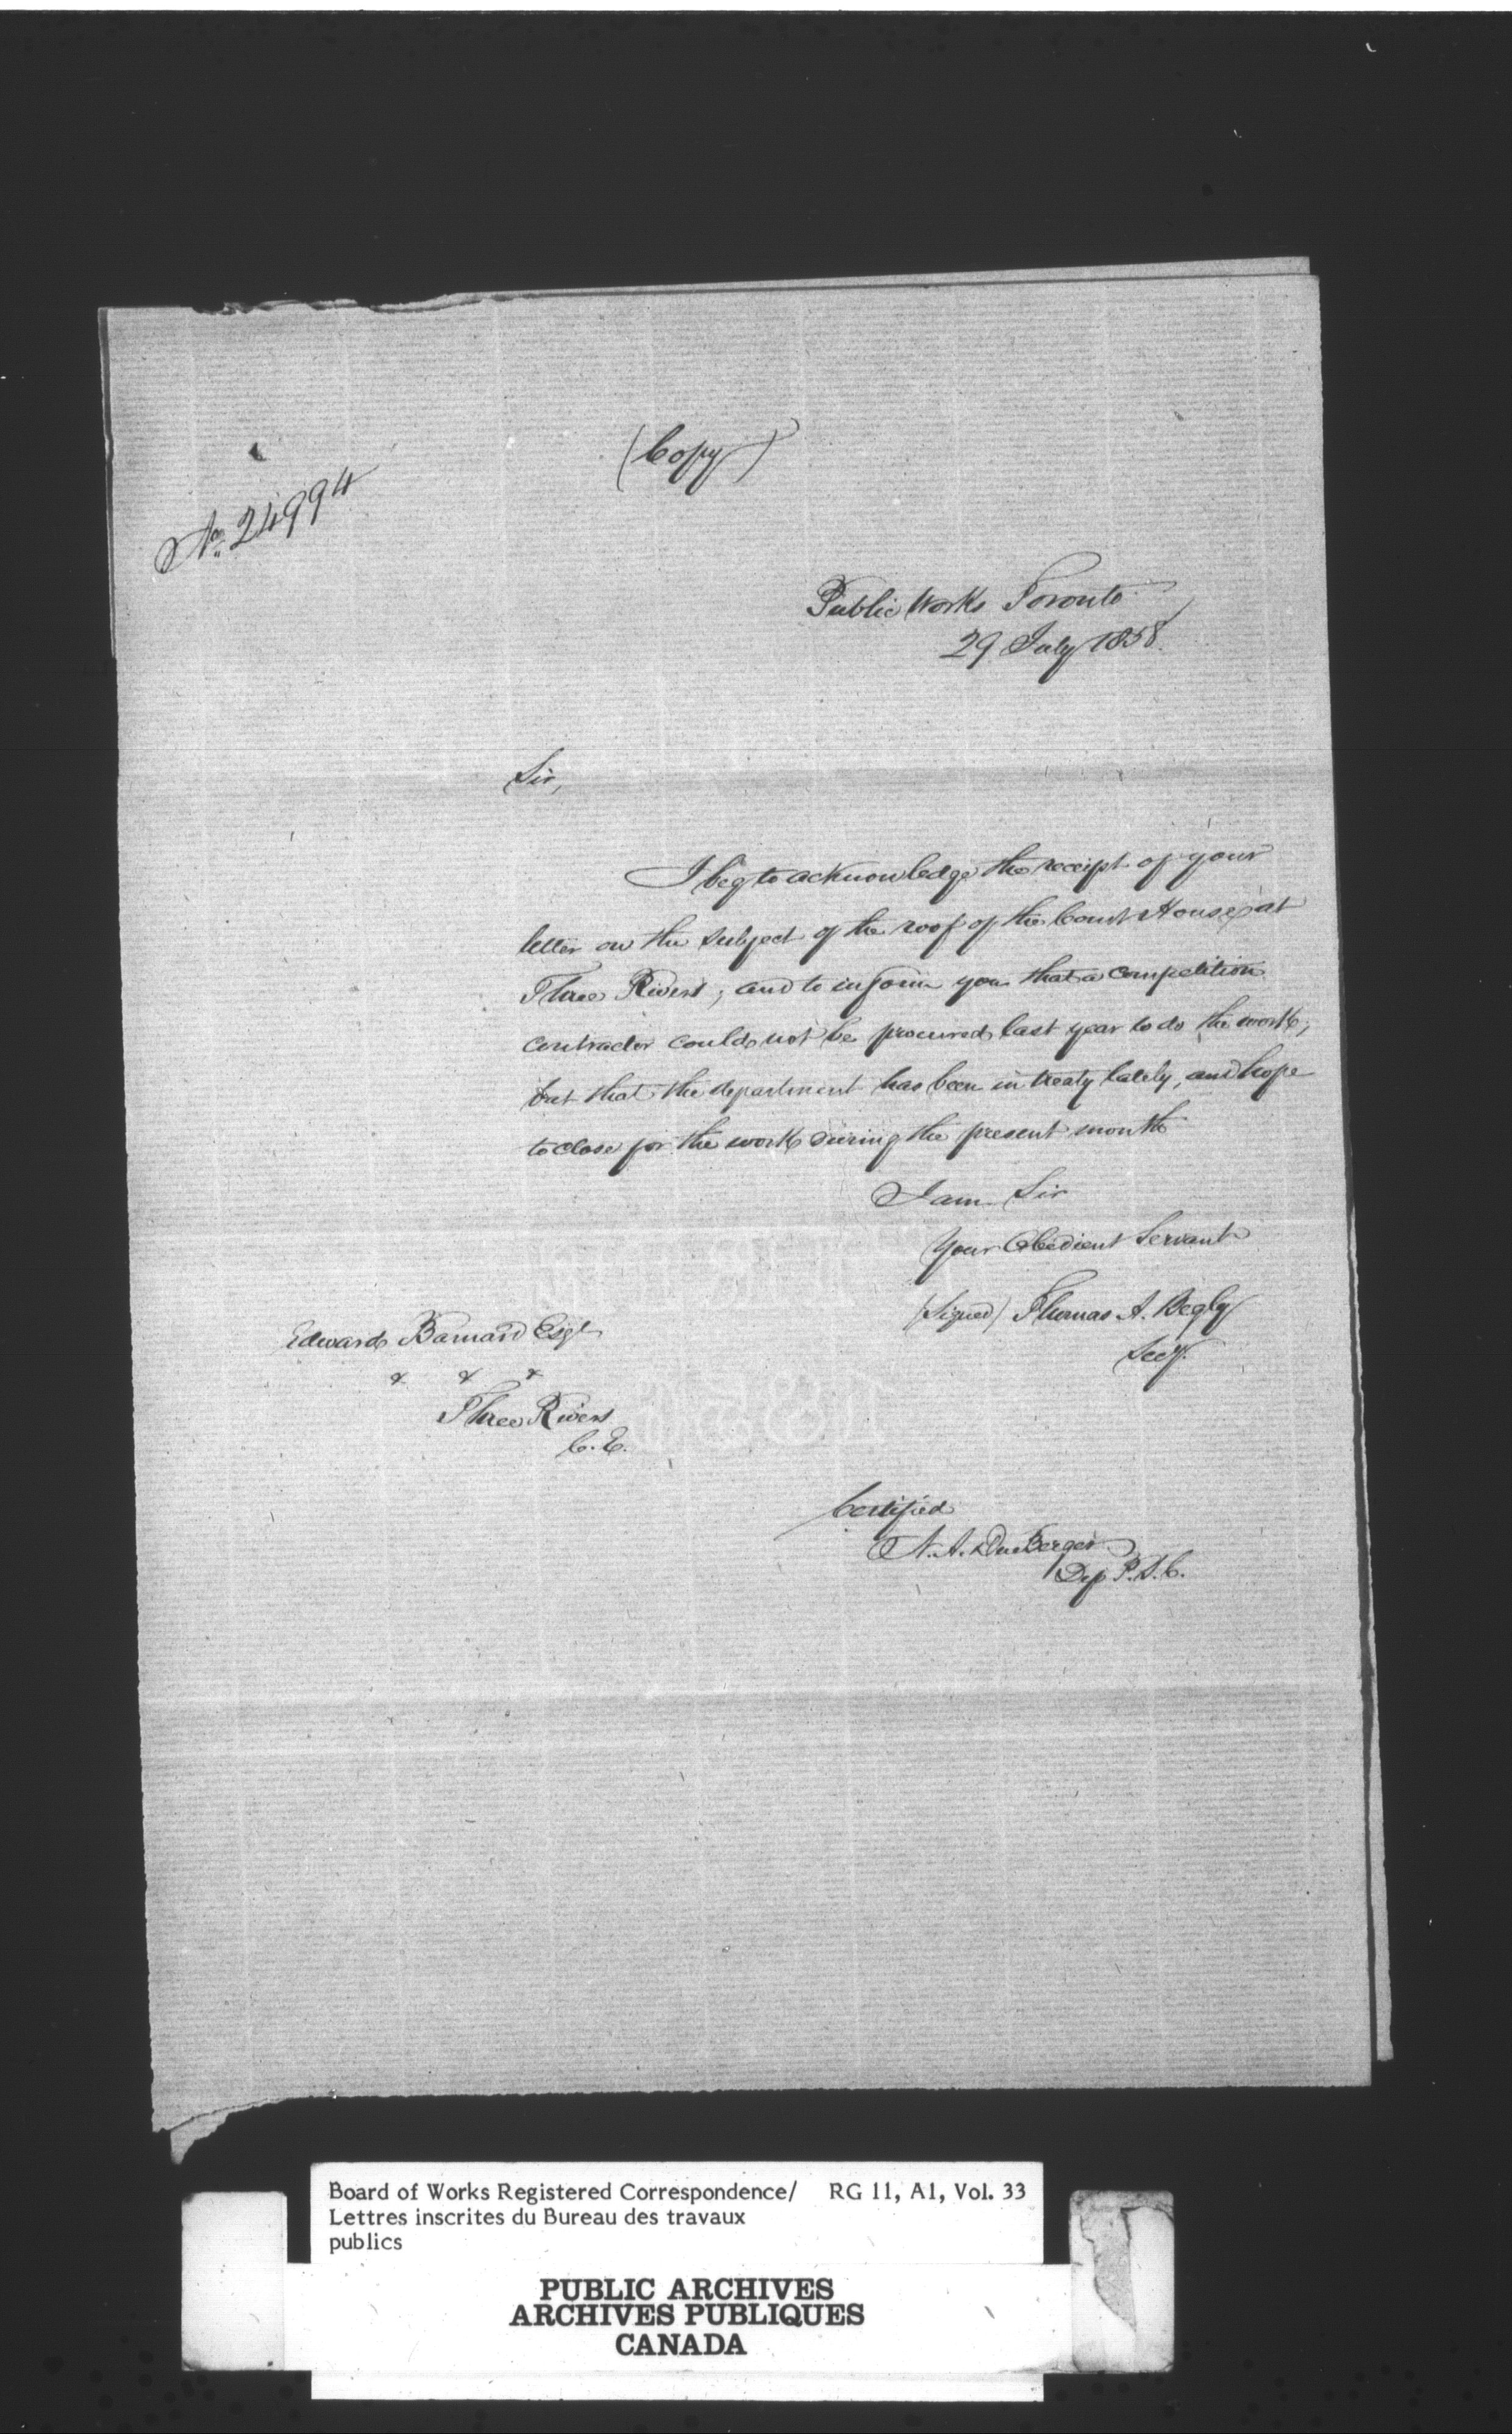 (Copy)
No. 24994
Public Works Toronto
29 July 1858.
Sir,
I beg to acknowledge the receipt of your
letter on the subject of the roof of the Court House at
Three Rivers; and to inform you that a competition
contractor could not be procured last year to do the work;
but that the department has been in treaty lately, and hope
to close for the work during the present month
I am Sir
Your Obedient Servant
(Signed) Thomas A. Begly
Secy.
Edward Barnard Esqr
& & &
Three Rivers
C.E.
Certified
N. A. DuBerger
Dep P.S.C.
Board of Works Registered Correspondence/ RG 11, A1, Vol. 33
Lettres inscrites du Bureau des travaux
publics
PUBLIC ARCHIVES
ARCHIVES PUBLIQUES
CANADA